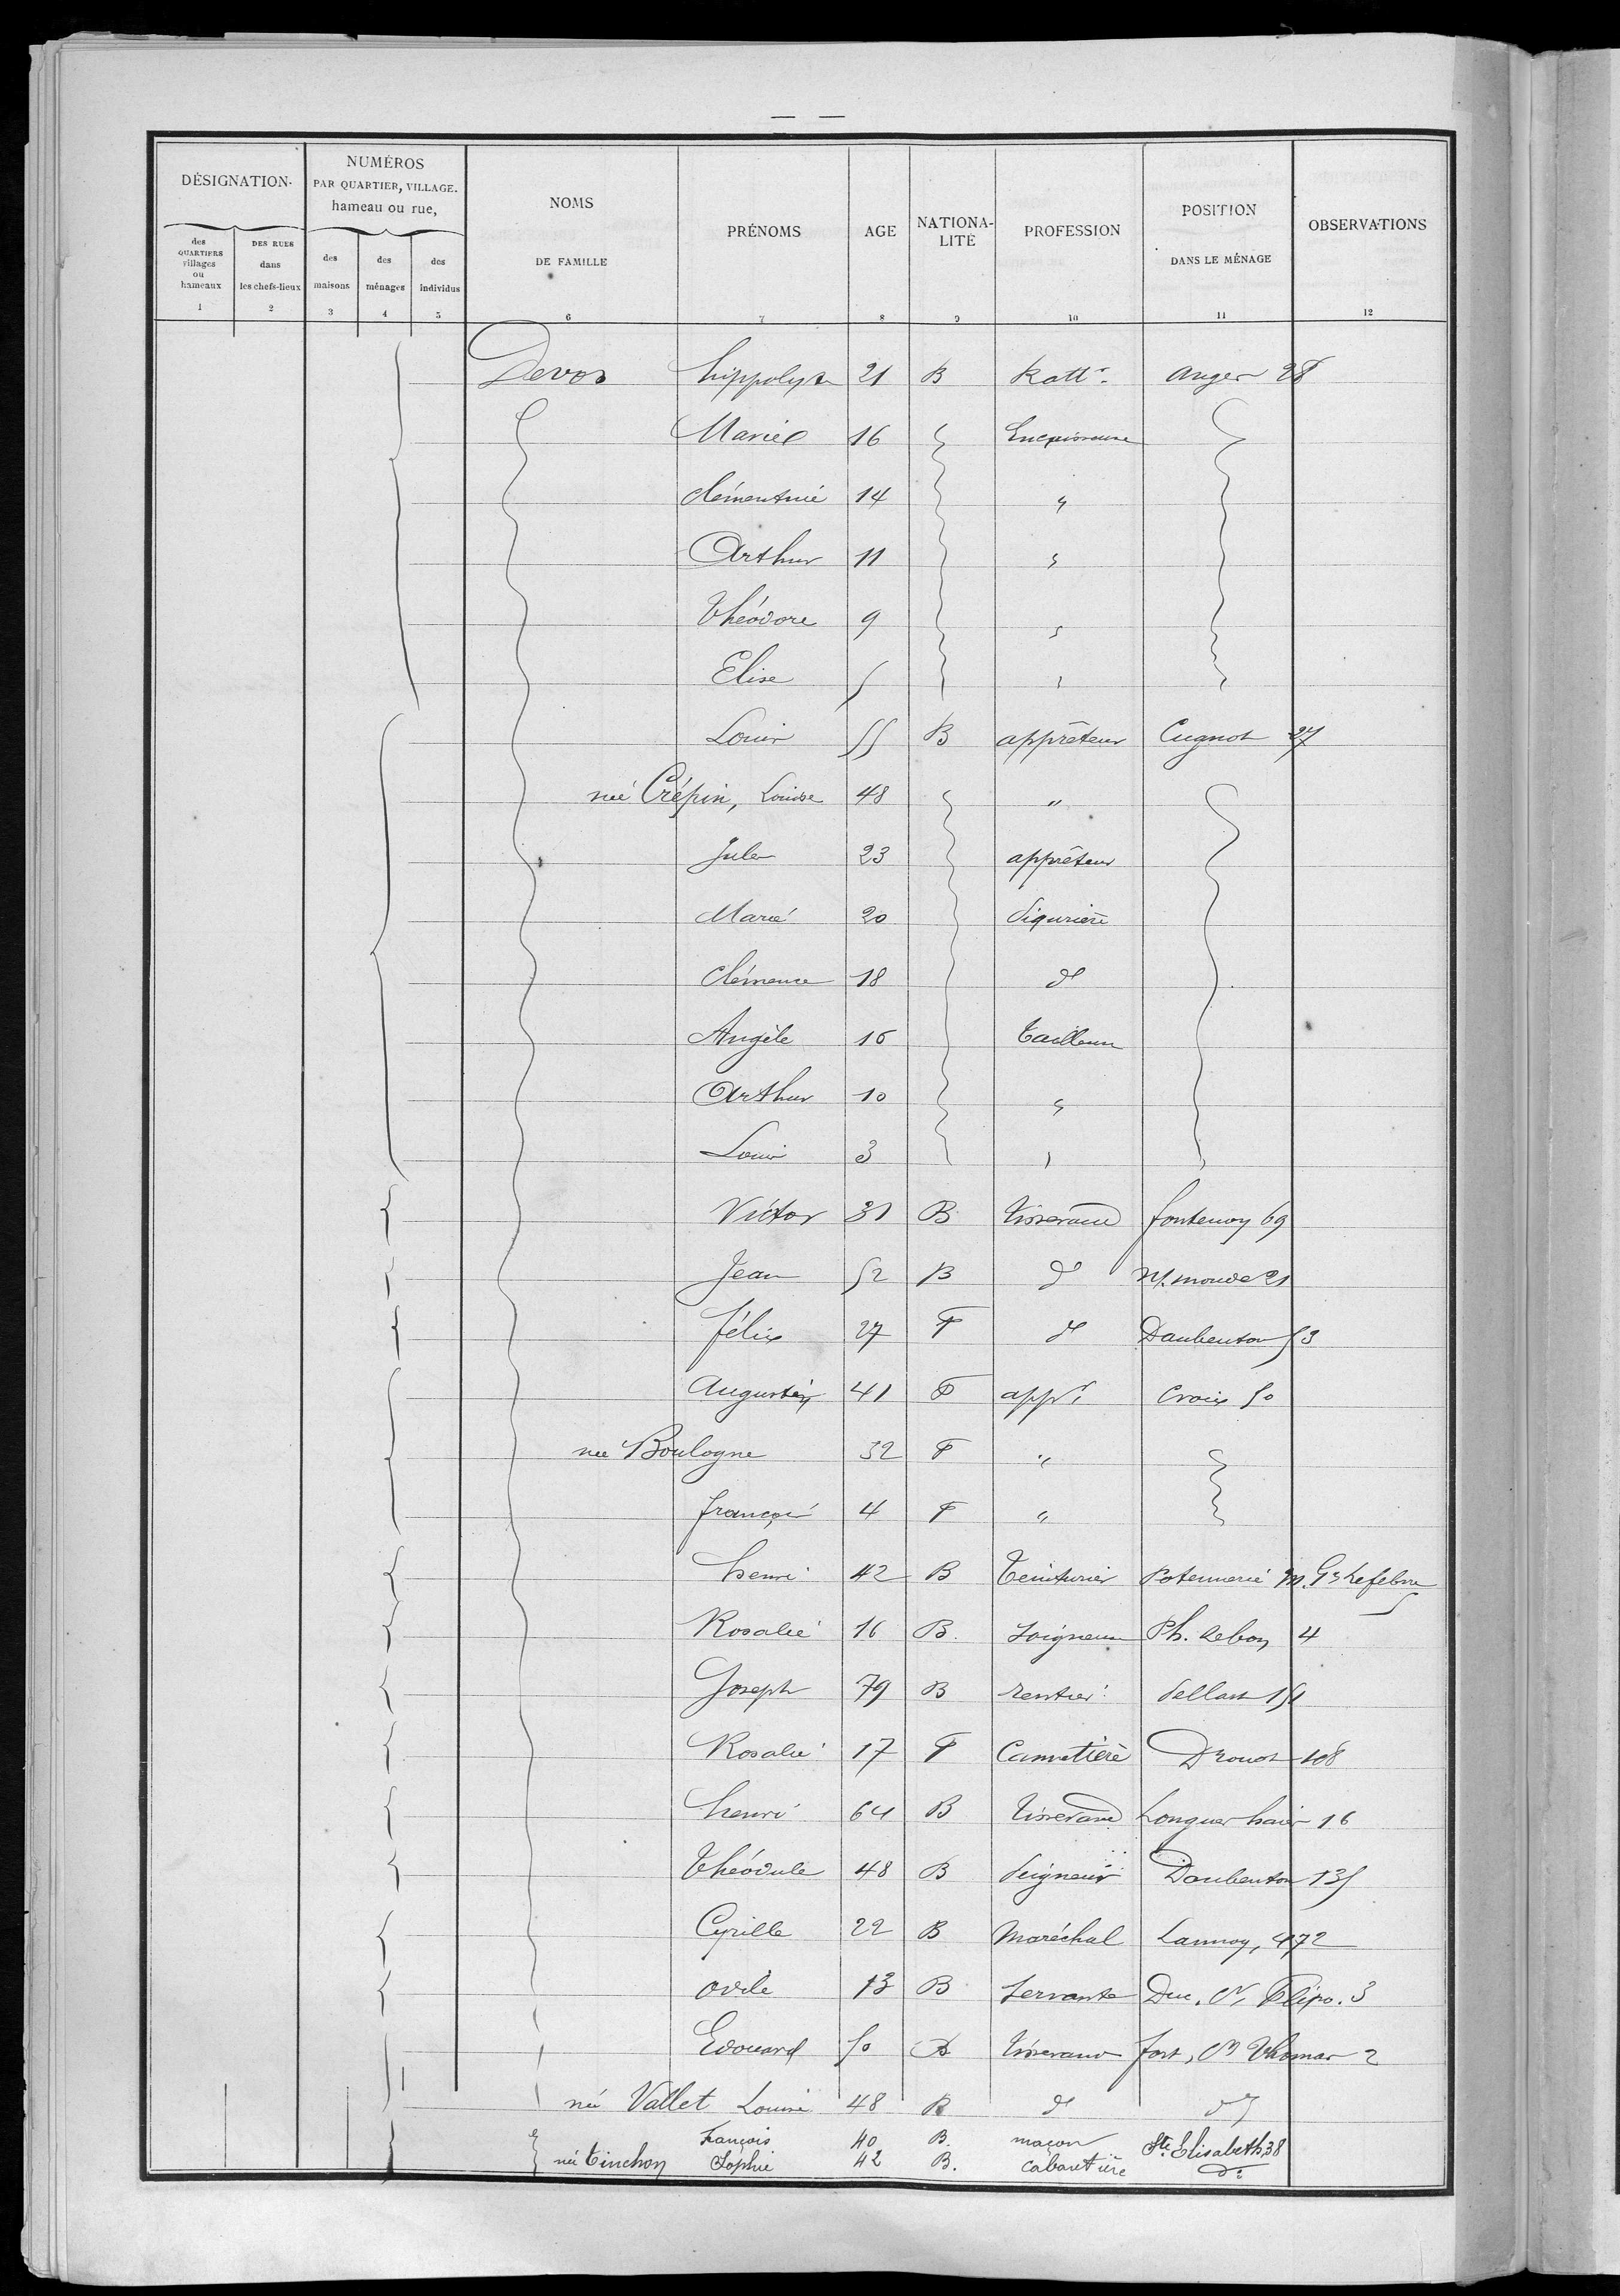 DÉSIGNATION
NUMÉROS
PAR QUARTIER, VILLAGE.
hameau ou rue,
NOMS
DE FAMILLE
PRÉNOMS
AGE
NATIONA-
LITÉ
PROFESSION
POSITION
DANS LE MÉNAGE
OBSERVATIONS
des
QUARTIERS
villages
ou
hameaux
DES RUES
dans
les chefs-lieux
des
maisons
des
ménages
des
individus
1 2 3 4 5 6 7 8 9 10 11 12
Devos Hippolyte 21 B Ratt. Anger 28
Marie 16
Clémentine 14 "
Arthur 11 "
Théodore 9 "
Elise 5 "
Louis 55 B apprêteur Cugnot 27
née Crépin, Louise 48 "
Jules 23 apprêteur
Marie 20 Piqurière
Clémence 18 d°
Angèle 16 Tailleuse
Arthur 10 "
Louis 3 "
Victor 31 B Tisserand fontenoy 69
Jean 52 B d° N. monde 21
félix 27 F d° Daubenton 53
Augustin 41 F app. Croix 50
née Boulogne 32 F "
françois 4 F "
henri 42 B Teinturier Potennerie m. Gs Lefebvre 5
Rosalie 16 B. Soigneuse Ph. Lebon 4
Joseph 79 B rentier Pellart 151
Rosalie 17 F Cannetière Drouot 108
henri 64 B Tisserand Longues haies 16
Théodule 48 B Peigneur Daubenton 135
Cyrille 22 B Maréchal Lannoy, 472
Ovile 13 B Servante Duc. Flipo. 3
Edouard 50 B Tisserand fort, Thomas 2
née Vallet Louise 48 B d° d°
François 40 B. maçon Ste Elisabeth, 38
née Tinchon Sophie 42 B. Cabaretière d°